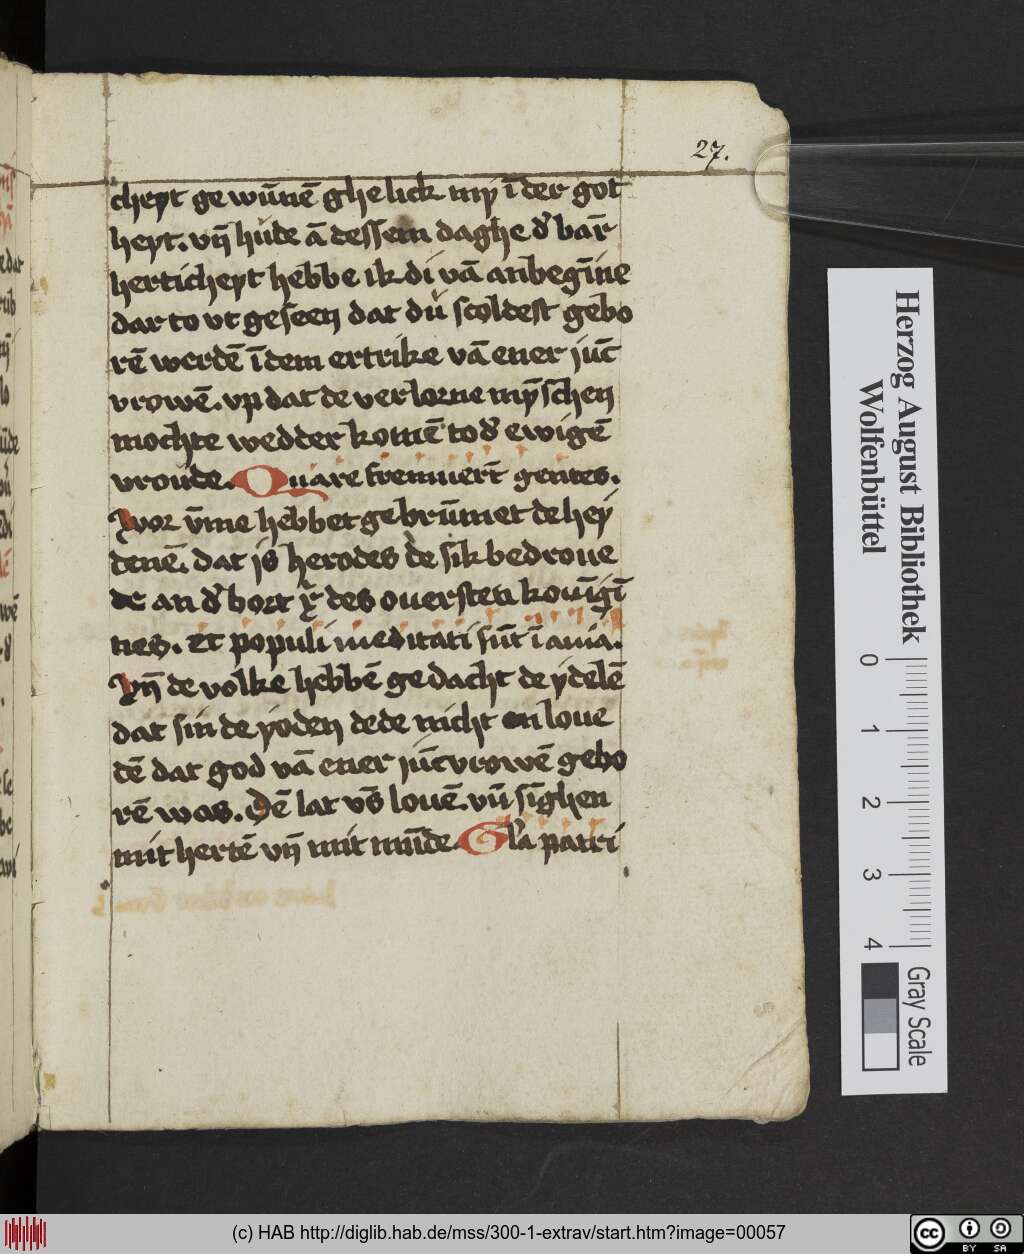 27.
cheyt ge wūnē ghe lick my ī der got
heyt. vn̄ hude ā dessem daghe d' bar̄
herticheyt hebbe ik di vā anbegīne
dar to vt geseen dat dů scoldest gebo
rē werdē ī dem ertrike vā ener juc̄
vrowē. vp dat de verlorne mȳschen
mochte wedder komē to d' ewigē
vroude. Quare fremuer̄t gentes.
Wor v̄me hebbet gebrūmet de hey
denē. dat is herodes de sik bedroue
de an d' bort xp̄ des ouersten konīgī
nes. et populi meditati sūt ī ania.
Vn̄ de volke hebbē gedacht de ydelē
dat sin de yoden dede nicht en loue
dē dat god vā ener juc̄vrowē gebo
rē was. Dē lat vs̄ louē. vn̄ sīghen
mit hertē vn̄ mit mūde. Gl'a patri
Herzog August Bibliothek
Wolfenbüttel
0 1 2 3 4
Gray Scale
(c) HAB http://diglib.hab.de/mss/300-1-extrav/start.htm?image=00057
cc BY SA